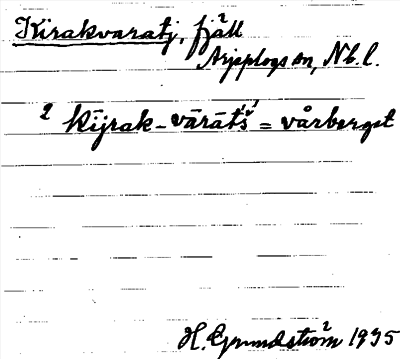 Kirakvaratj, fjäll
Arjeplogs sn, Nb.l.
2 kījrak-vārātš́ = vårberget
H. Grundström 1935